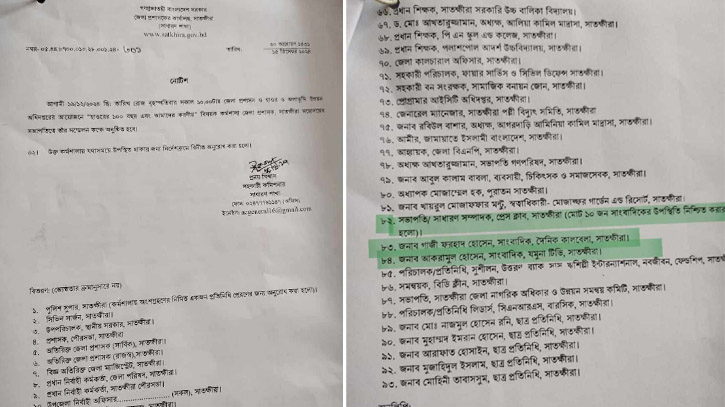 গণপ্রজাতন্ত্রী বাংলাদেশ সরকার
জেলা প্রশাসকের কার্যালয়, সাতক্ষীরা
(সাধারণ শাখা)
www.satkhira.gov.bd
তারিখ:
নোটিশ
আগামী ১৯/১২/২০২৪ খ্রি: তারিখ রোজ বৃহস্পতিবার সকাল ১০.০০টায় জেলা প্রশাসন ও হাওর ও জলাভূমি উন্নয়ন
অধিদপ্তরের আয়োজনে "হাওরের ১০০ বছর এবং আমাদের করণীয়" বিষয়ক কর্মশালা জেলা প্রশাসক, সাতক্ষীরা মহোদয়ের
সভাপতিত্বে তাঁর সম্মেলন কক্ষে অনুষ্ঠিত হবে।
০২। উক্ত কর্মশালায় যথাসময়ে উপস্থিত থাকার জন্য নির্দেশক্রমে বিনীত অনুরোধ করা হলো।
সহকারী কমিশনার
সাধারণ শাখা
বিতরণ: (জ্যেষ্ঠতার ক্রমানুসারে নয়)
১. পুলিশ সুপার, সাতক্ষীরা (কর্মশালায় অংশগ্রহণের নিমিত্ত একজন প্রতিনিধি প্রেরণের জন্য অনুরোধ করা হলো)।
২. সিভিল সার্জন, সাতক্ষীরা।
৩. উপপরিচালক, স্থানীয় সরকার, সাতক্ষীরা।
৪. প্রশাসক, পৌরসভা, সাতক্ষীরা
৫. অতিরিক্ত জেলা প্রশাসক (সার্বিক), সাতক্ষীরা।
৬. অতিরিক্ত জেলা প্রশাসক (রাজস্ব), সাতক্ষীরা।
৭. বিজ্ঞ অতিরিক্ত জেলা ম্যাজিস্ট্রেট, সাতক্ষীরা।
৮. প্রধান নির্বাহী কর্মকর্তা, জেলা পরিষদ, সাতক্ষীরা।
৯. প্রধান নির্বাহী কর্মকর্তা, সাতক্ষীরা পৌরসভা।
উপজেলা নির্বাহী অফিসার.................... (সকল), সাতক্ষীরা।
৬৬. প্রধান শিক্ষক, সাতক্ষীরা সরকারি উচ্চ বালিকা বিদ্যালয়।
৬৭. ড. মোঃ আখতারুজ্জামান, অধ্যক্ষ, আলিয়া কামিল মাদ্রাসা, সাতক্ষীরা।
৬৮. প্রধান শিক্ষক, পি এন স্কুল এন্ড কলেজ, সাতক্ষীরা।
৬৯. প্রধান শিক্ষক, পলাশপোল আদর্শ উচ্চবিদ্যালয়, সাতক্ষীরা।
৭০. জেলা কালচারাল অফিসার, সাতক্ষীরা।
৭১. সহকারী পরিচালক, ফায়ার সার্ভিস ও সিভিল ডিফেন্স সাতক্ষীরা।
৭২. সহকারী বন সংরক্ষক, সামাজিক বনায়ন জোন, সাতক্ষীরা।
৭৩. প্রোগ্রামার আইসিটি অধিদপ্তর, সাতক্ষীরা।
৭৪. জেনারেল ম্যানেজার, সাতক্ষীরা পল্লী বিদ্যুৎ সমিতি, সাতক্ষীরা
৭৫. জনাব রবিউল বাশার, অধ্যক্ষ, আগরদাড়ি আমিনিয়া কামিল মাদ্রাসা, সাতক্ষীরা।
৭৬. আমীর, জামায়াতে ইসলামী বাংলাদেশ, সাতক্ষীরা।
৭৭. আহ্বায়ক, জেলা বিএনপি, সাতক্ষীরা।
৭৮. অধ্যক্ষ আখতারুজ্জামান, সভাপতি গণপরিষদ, সাতক্ষীরা।
৭৯. জনাব আবুল কালাম বাবলা, ব্যবসায়ী, চিকিৎসক ও সমাজসেবক, সাতক্ষীরা।
৮০. অধ্যাপক মোজাম্মেল হক, পুরাতন সাতক্ষীরা।
৮১. জনাব খায়রুল মোজাফফার মন্টু, স্বত্বাধিকারী- মোজাফ্ফর গার্ডেন এন্ড রিসোর্ট, সাতক্ষীরা।
৮২. সভাপতি/ সাধারণ সম্পাদক, প্রেস ক্লাব, সাতক্ষীরা (মোট ১০ জন সাংবাদিকের উপস্থিতি নিশ্চিত করার
হলো)।
৮৩. জনাব গাজী ফরহাদ হোসেন, সাংবাদিক, দৈনিক কালবেলা, সাতক্ষীরা।
৮৪. জনাব আকরামুল হোসেন, সাংবাদিক, যমুনা টিভি, সাতক্ষীরা।
৮৫. পরিচালক/প্রতিনিধি, সুশীলন, উত্তরণ ইন্টারন্যাশনাল, নবজীবন, ফ্রেন্ডশিপ, সাতক্ষীরা
৮৬. সমন্বয়ক, বিডি ক্লীন, সাতক্ষীরা।
৮৭. সভাপতি, সাতক্ষীরা জেলা নাগরিক অধিকার ও উন্নয়ন সমন্বয় কমিটি, সাতক্ষীরা।
৮৮. পরিচালক/প্রতিনিধি লিডার্স, সিএনআরএস, বারসিক, সাতক্ষীরা।
৮৯. জনাব মোঃ নাজমুল হোসেন রনি, ছাত্র প্রতিনিধি, সাতক্ষীরা।
৯০. জনাব মুহাম্মদ ইমরান হোসেন, ছাত্র প্রতিনিধি, সাতক্ষীরা।
৯১. জনাব আরাফাত হোসাইন, ছাত্র প্রতিনিধি, সাতক্ষীরা।
৯২. জনাব মুজাহিদুল ইসলাম, ছাত্র প্রতিনিধি, সাতক্ষীরা।
৯৩. জনাব মোহিনী তাবাসসুম, ছাত্র প্রতিনিধি, সাতক্ষীরা।